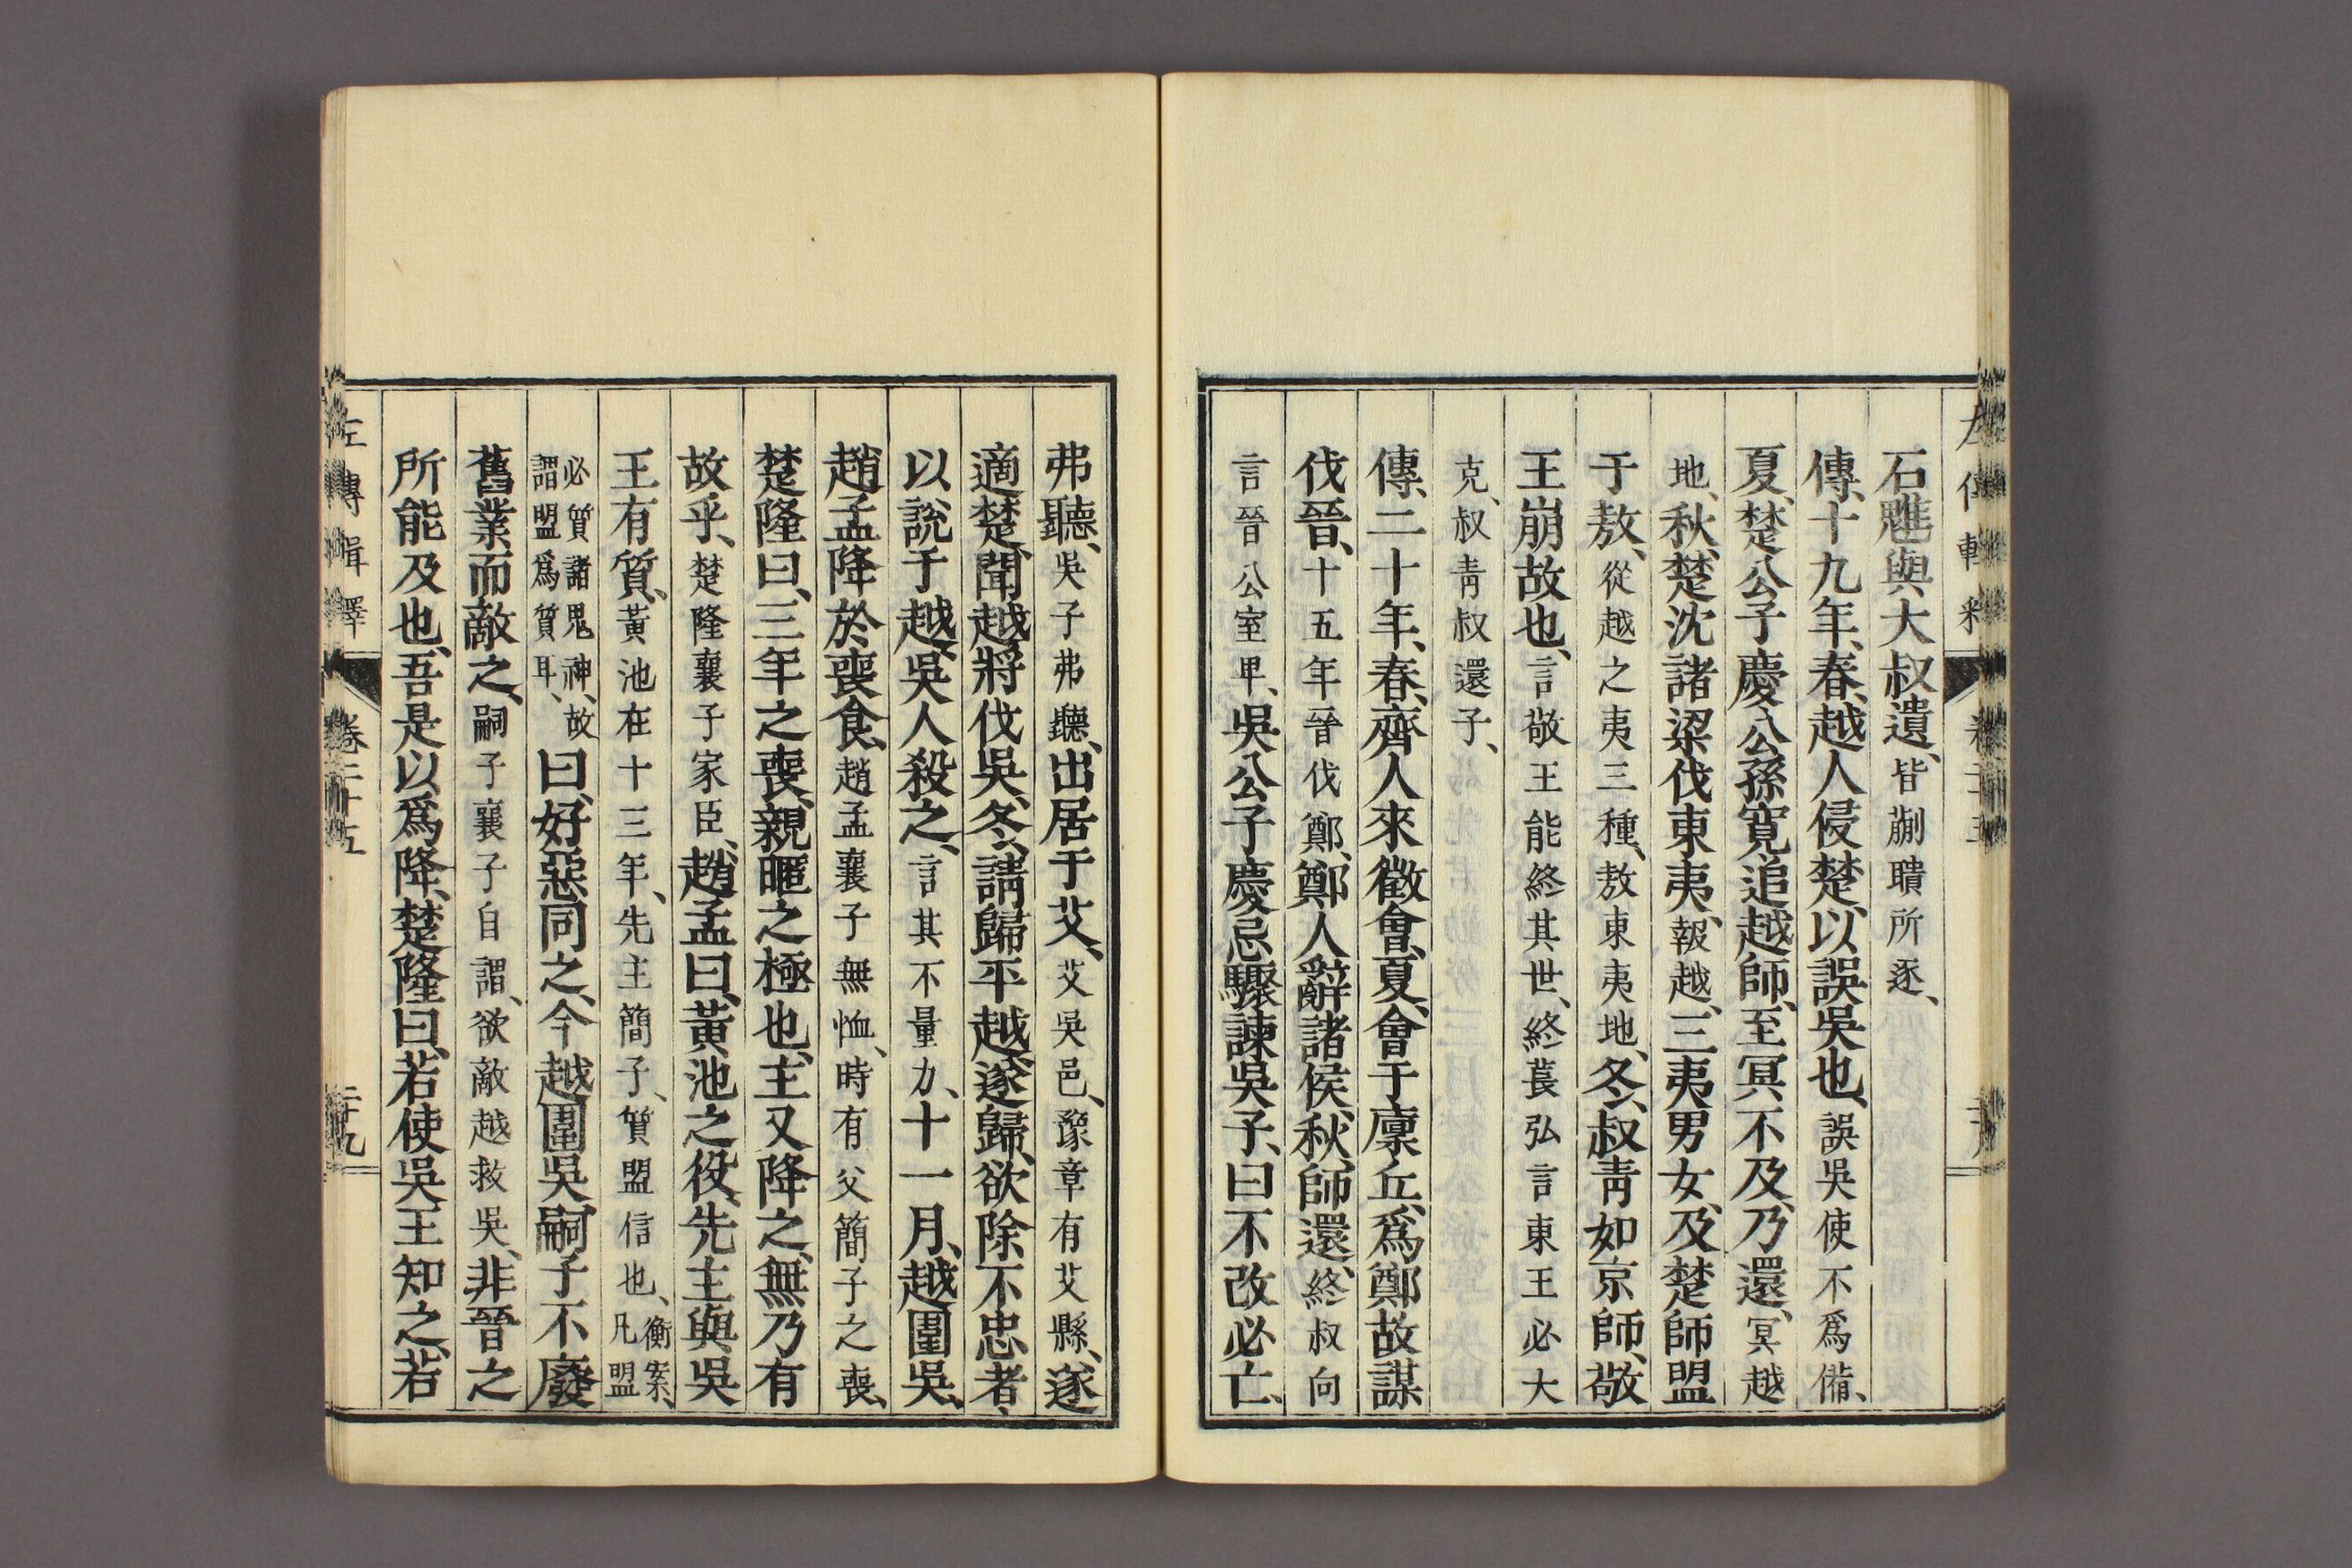 石魋與大叔遺、皆蒯聵所逐、
傳、十九年、春、越人侵楚、以誤吳也、誤吳使不爲備、
夏、楚公子慶公孫寬追越師、至冥不及、乃還、冥越
地、秋、楚沈諸梁伐東夷、報越、三夷男女、及楚師盟
于敖、從越之夷三種、敖東夷地、冬、叔靑如京師、敬
王崩故也、言敬王能終其世、終萇弘言東王必大
克、叔靑叔還子、
傳、二十年、春、齊人來徵會、夏、會于廩丘、爲鄭故謀
伐晉、十五年晉伐鄭、鄭人辭諸侯、秋、師還、終叔向
言晉公室卑、吳公子慶忌驟諫吳子、曰不改必亡、
弗聽、吳子弗聽、出居于艾、艾吳邑、豫章有艾縣、遂
適楚、聞越將伐吳、冬、請歸平越、遂歸、欲除不忠者、
以說于越、吳人殺之、言其不量力、十一月、越圍吳、
趙孟降於喪食、趙孟襄子無恤、時有父簡子之喪、
楚隆曰、三年之喪、親暱之極也、主又降之、無乃有
故乎、楚隆襄子家臣、趙孟曰、黃池之役、先主與吳
王有質、黃池在十三年、先主簡子、質盟信也、衡案、凡盟
必質諸鬼神、故謂盟爲質耳、曰、好惡同之、今越圍吳、嗣子不廢
舊業而敵之、嗣子襄子自謂、欲敵越救吳、非晉之
所能及也、吾是以爲降、楚隆曰、若使吳王知之、若
左傳輯釋 卷二十五 二十九